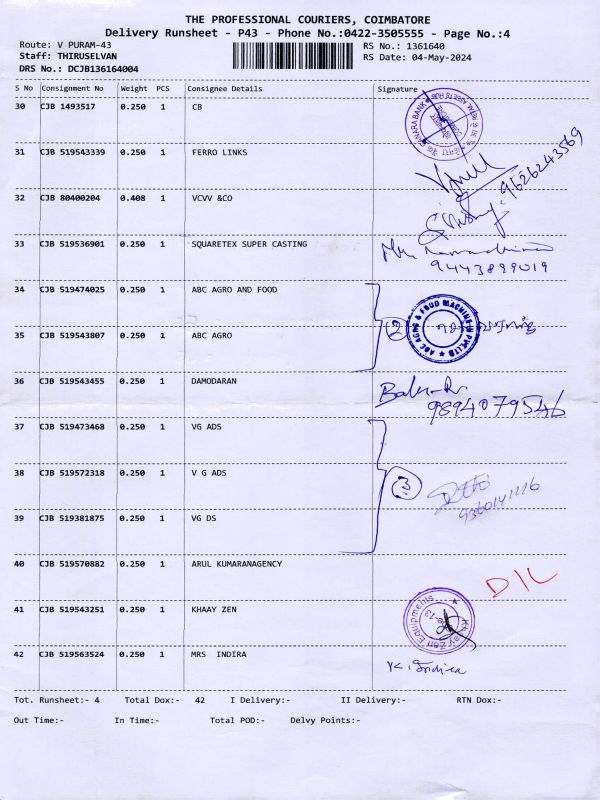 THE PROFESSIONAL COURIERS, COIMBATORE
Delivery Runsheet - P43 - Phone No.:0422-3505555 - Page No.:4
Route: V PURAM-43
RS No.: 1361640
Staff: THIRUSELVAN
RS Date: 04-May-2024
DRS No.: DCJB136164004
S No Consignment No Weight PCS Consignee Details Signature
30 CJB 1493517 0.250 1 CB
CANARA BANK
COIMBATORE
31 CJB 519543339 0.250 1 FERRO LINKS
9626243569
32 CJB 80400204 0.408 1 VCVV &CO
33 CJB 519536901 0.250 1 SQUARETEX SUPER CASTING
9443899019
34 CJB 519474025 0.250 1 ABC AGRO AND FOOD
ABC AGRO & FOOD MACHINE (I) PVT LTD
2
35 CJB 519543807 0.250 1 ABC AGRO
36 CJB 519543455 0.250 1 DAMODARAN
9894079546
37 CJB 519473468 0.250 1 VG ADS
38 CJB 519572318 0.250 1 V G ADS
3
39 CJB 519381875 0.250 1 VG DS
40 CJB 519570882 0.250 1 ARUL KUMARANAGENCY
D/L
41 CJB 519543251 0.250 1 KHAAY ZEN
Khaay Zen Equipments
42 CJB 519563524 0.250 1 MRS INDIRA
K. Indira
Tot. Runsheet:- 4 Total Dox:- 42 I Delivery:- II Delivery:- RTN Dox:-
Out Time:- In Time:- Total POD:- Delvy Points:-